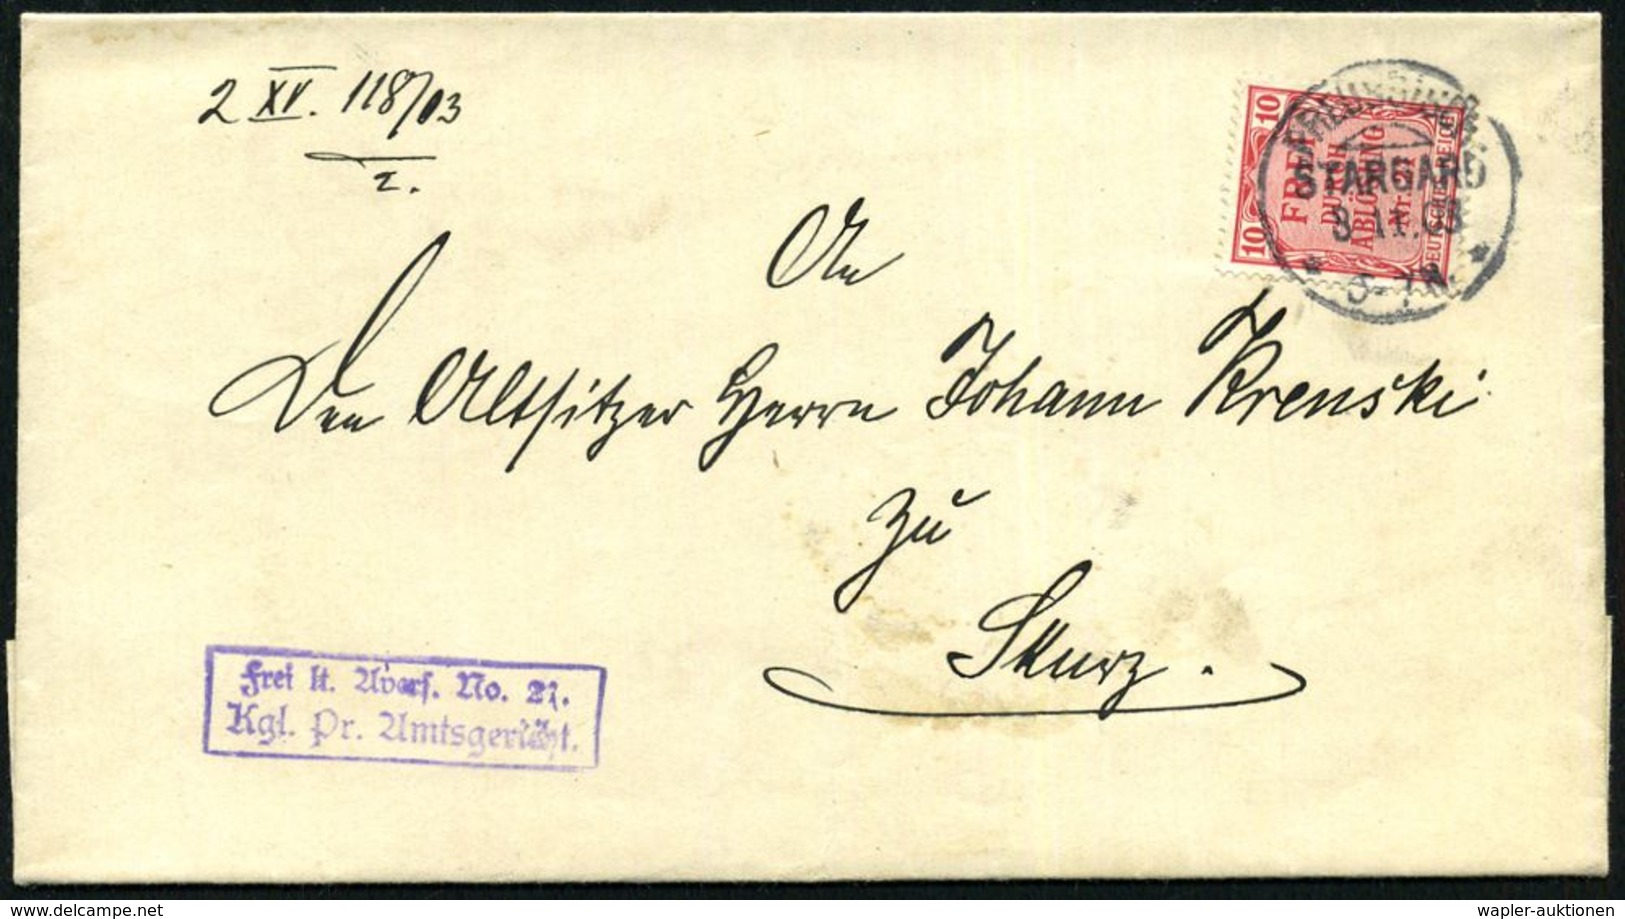 2 XV. 118/03
2.
An
Den Altsitzer Herrn Johann Krenski
zu
Skurz.
10 10
FREI
DURCH
ABLÖSUNG
Nr. 21
DEUTSCHES REICH
STARGARD
8.11.03
5-7N.
Frei lt. Avers. No. 21.
Kgl. Pr. Amtsgericht.
wapler-auktionen